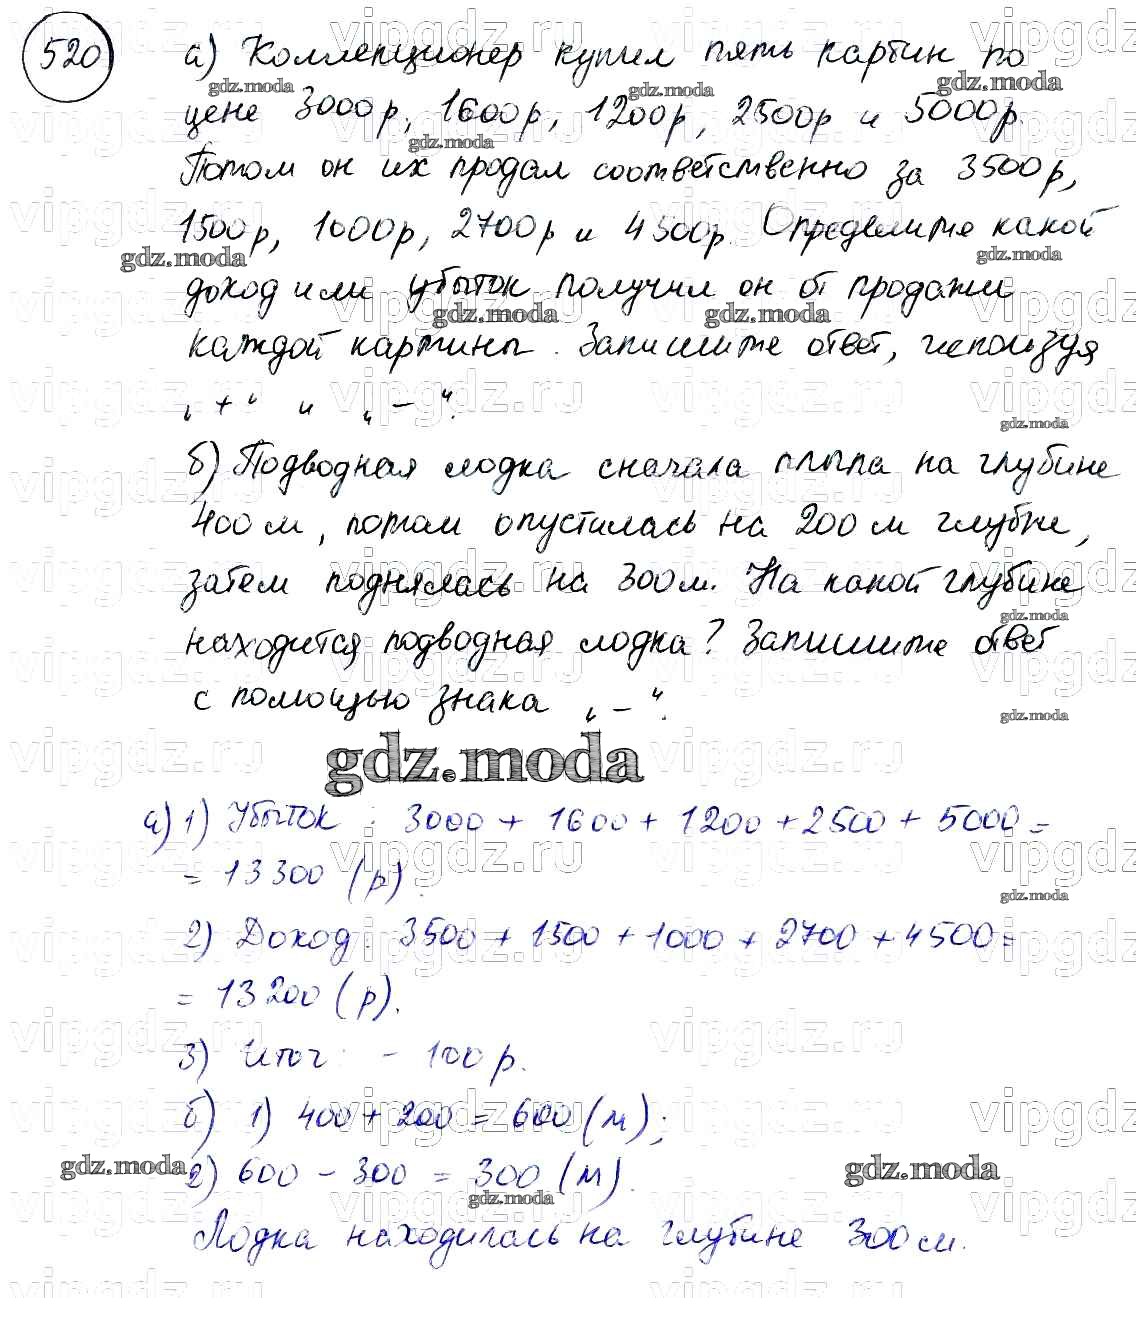 520
а) Коллекционер купил пять картин по
цене 3000р, 1600р, 1200р, 2500р и 5000р.
Потом он их продал соответственно за 3500р,
1500р, 1000р, 2700р и 4500р. Определите какой
доход или убыток получил он от продажи
каждой картины. Запишите ответ, используя
„+“ и „-“.
б) Подводная лодка сначала плыла на глубине
400м, потом опустилась на 200м глубже,
затем поднялась на 300м. На какой глубине
находится подводная лодка? Запишите ответ
с помощью знака „-“.
gdz.moda
а) 1) Убыток: 3000 + 1600 + 1200 + 2500 + 5000 =
= 13300 (р).
2) Доход: 3500 + 1500 + 1000 + 2700 + 4500 =
= 13200 (р).
3) Итог: - 100 р.
б) 1) 400 + 200 = 600 (м);
2) 600 - 300 = 300 (м).
Лодка находилась на глубине 300 м.
vipgdz.ru